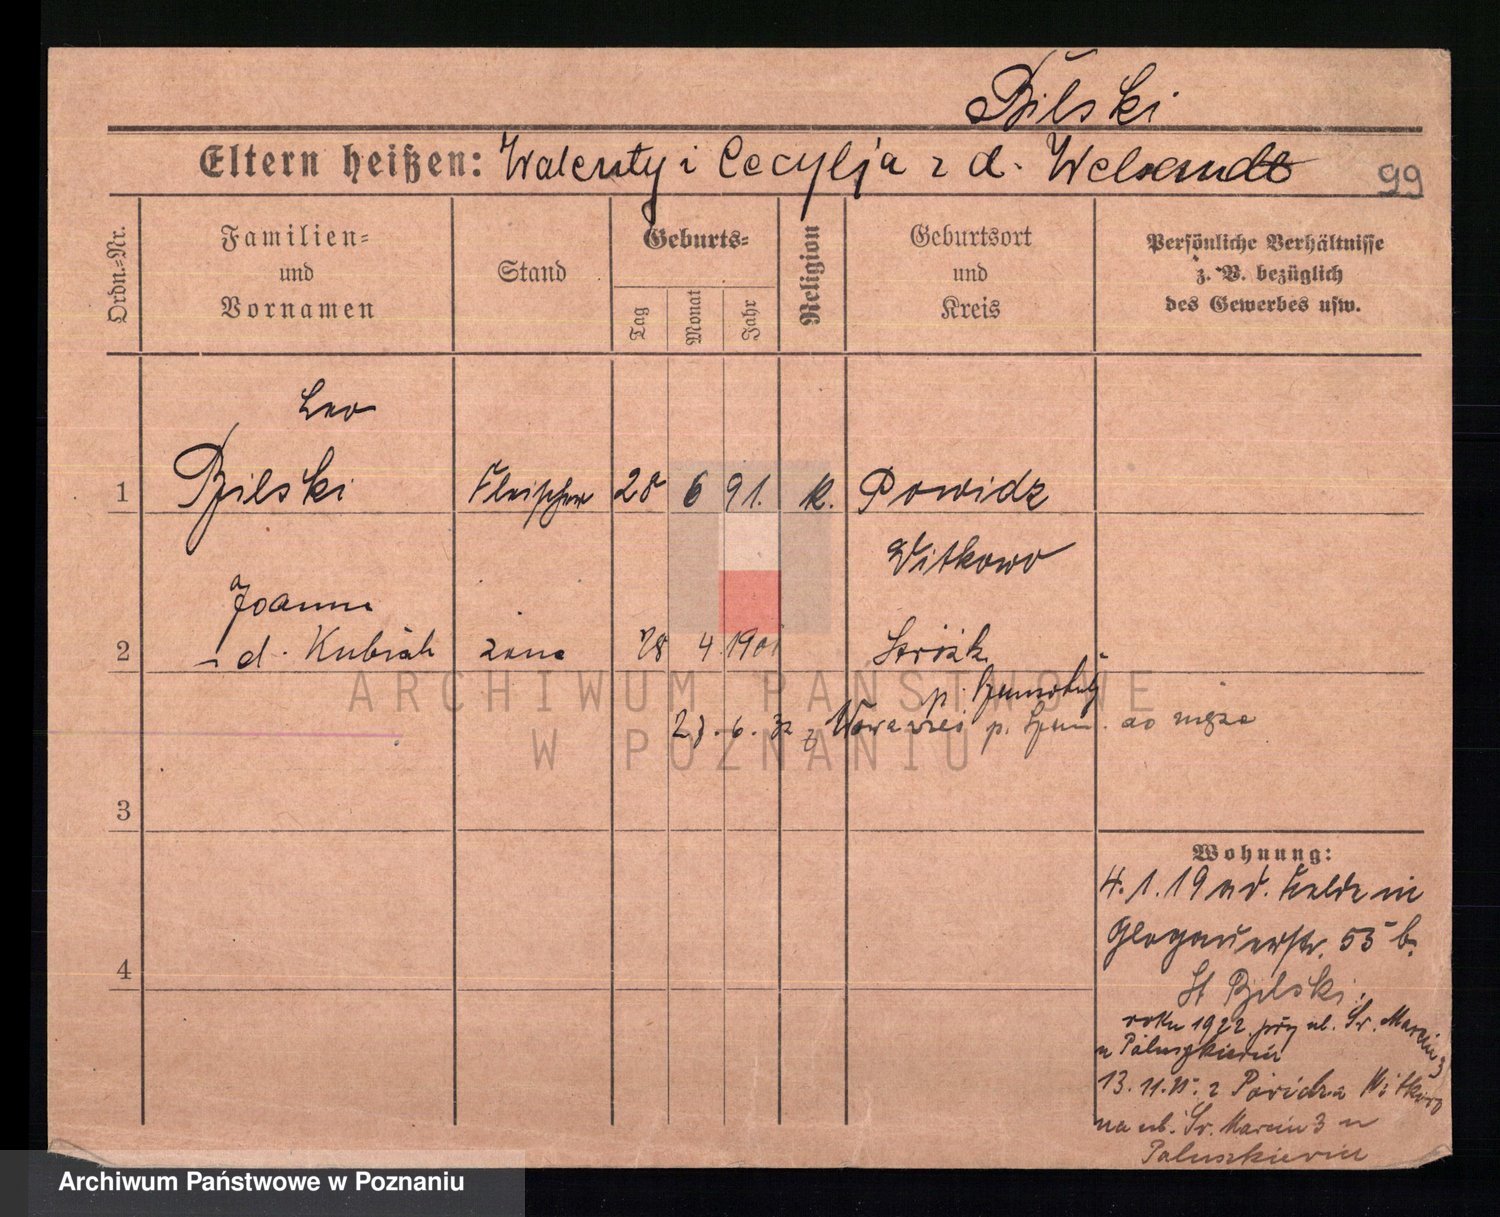 Bilski
Eltern heißen: Walenty i Cecylja z d. Welsandt
99
Ordn.=Nr.
Familien=
und
Vornamen
Stand
Geburts=
Tag
Monat
Jahr
Religion
Geburtsort
und
Kreis
Persönliche Verhältnisse
z. B. bezüglich
des Gewerbes usw.
Leo
1 Bilski Fleischer 28 6 91. k. Powidz
Witkowo
Joanna
2 d. Kubiak żona 28 4 1901
p.
6. 32 z p. do męża
3
Wohnung:
4. 1. 19 in
Glogauerstr. 55 b.
St Bilski.
4
roku 1922 przy ul. Św. Marcin 3
u Paluszkiewicz
13. 11. z Powidza Witkowo
na ul. Św. Marcin 3 u
Paluszkiewicz
ARCHIWUM PAŃSTWOWE
W POZNANIU
Archiwum Państwowe w Poznaniu